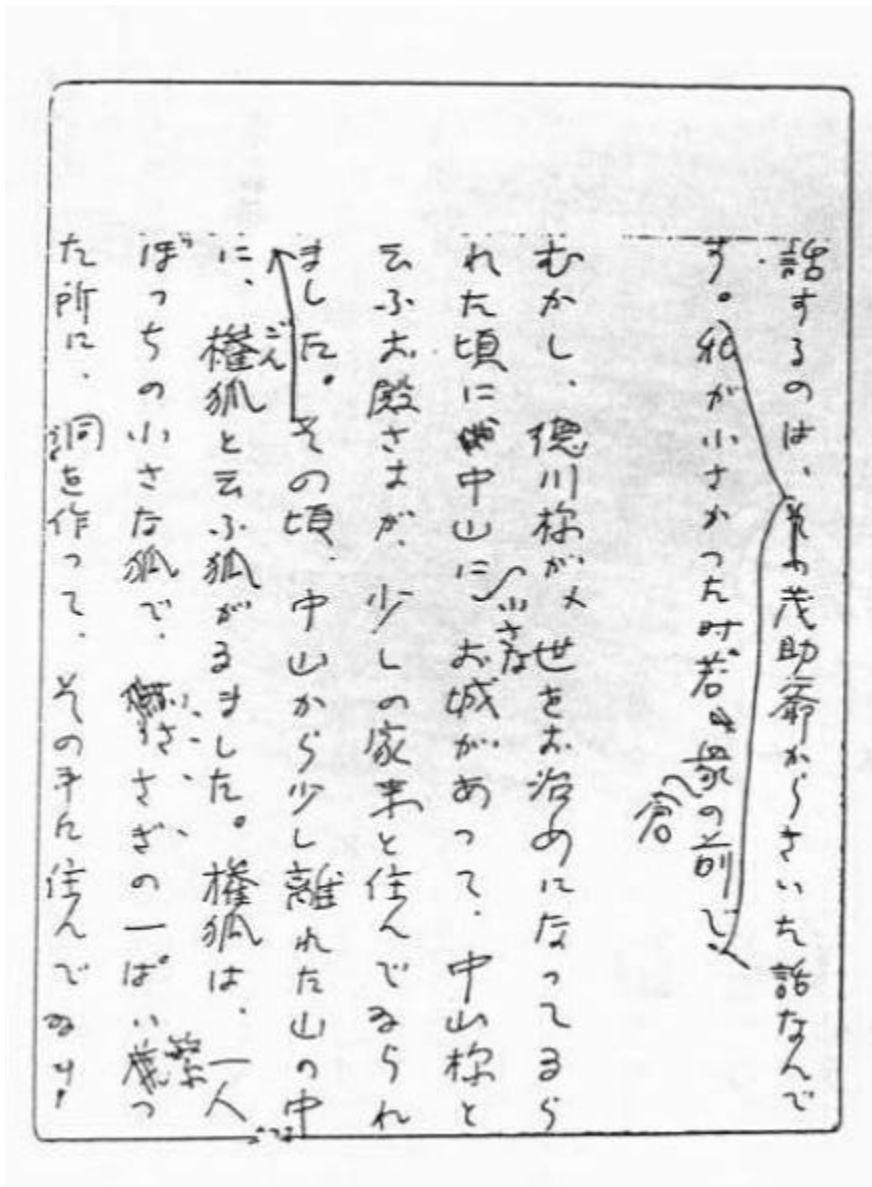 話するのは、その茂助爺からきいた話なんで
す。私が小さかった時若衆倉の前で、
むかし、徳川様が世をお治めになってゐら
れた頃に中山に小さなお城があって、中山様と
云ふお殿さまが、少しの家来と住んでゐられ
ました。その頃、中山から少し離れた山の中
に、權狐と云ふ狐がゐました。權狐は、一人
ぼっちの小さな狐で、いささぎの一ぱい繁っ
た所に、洞を作って、その中に住んでゐま